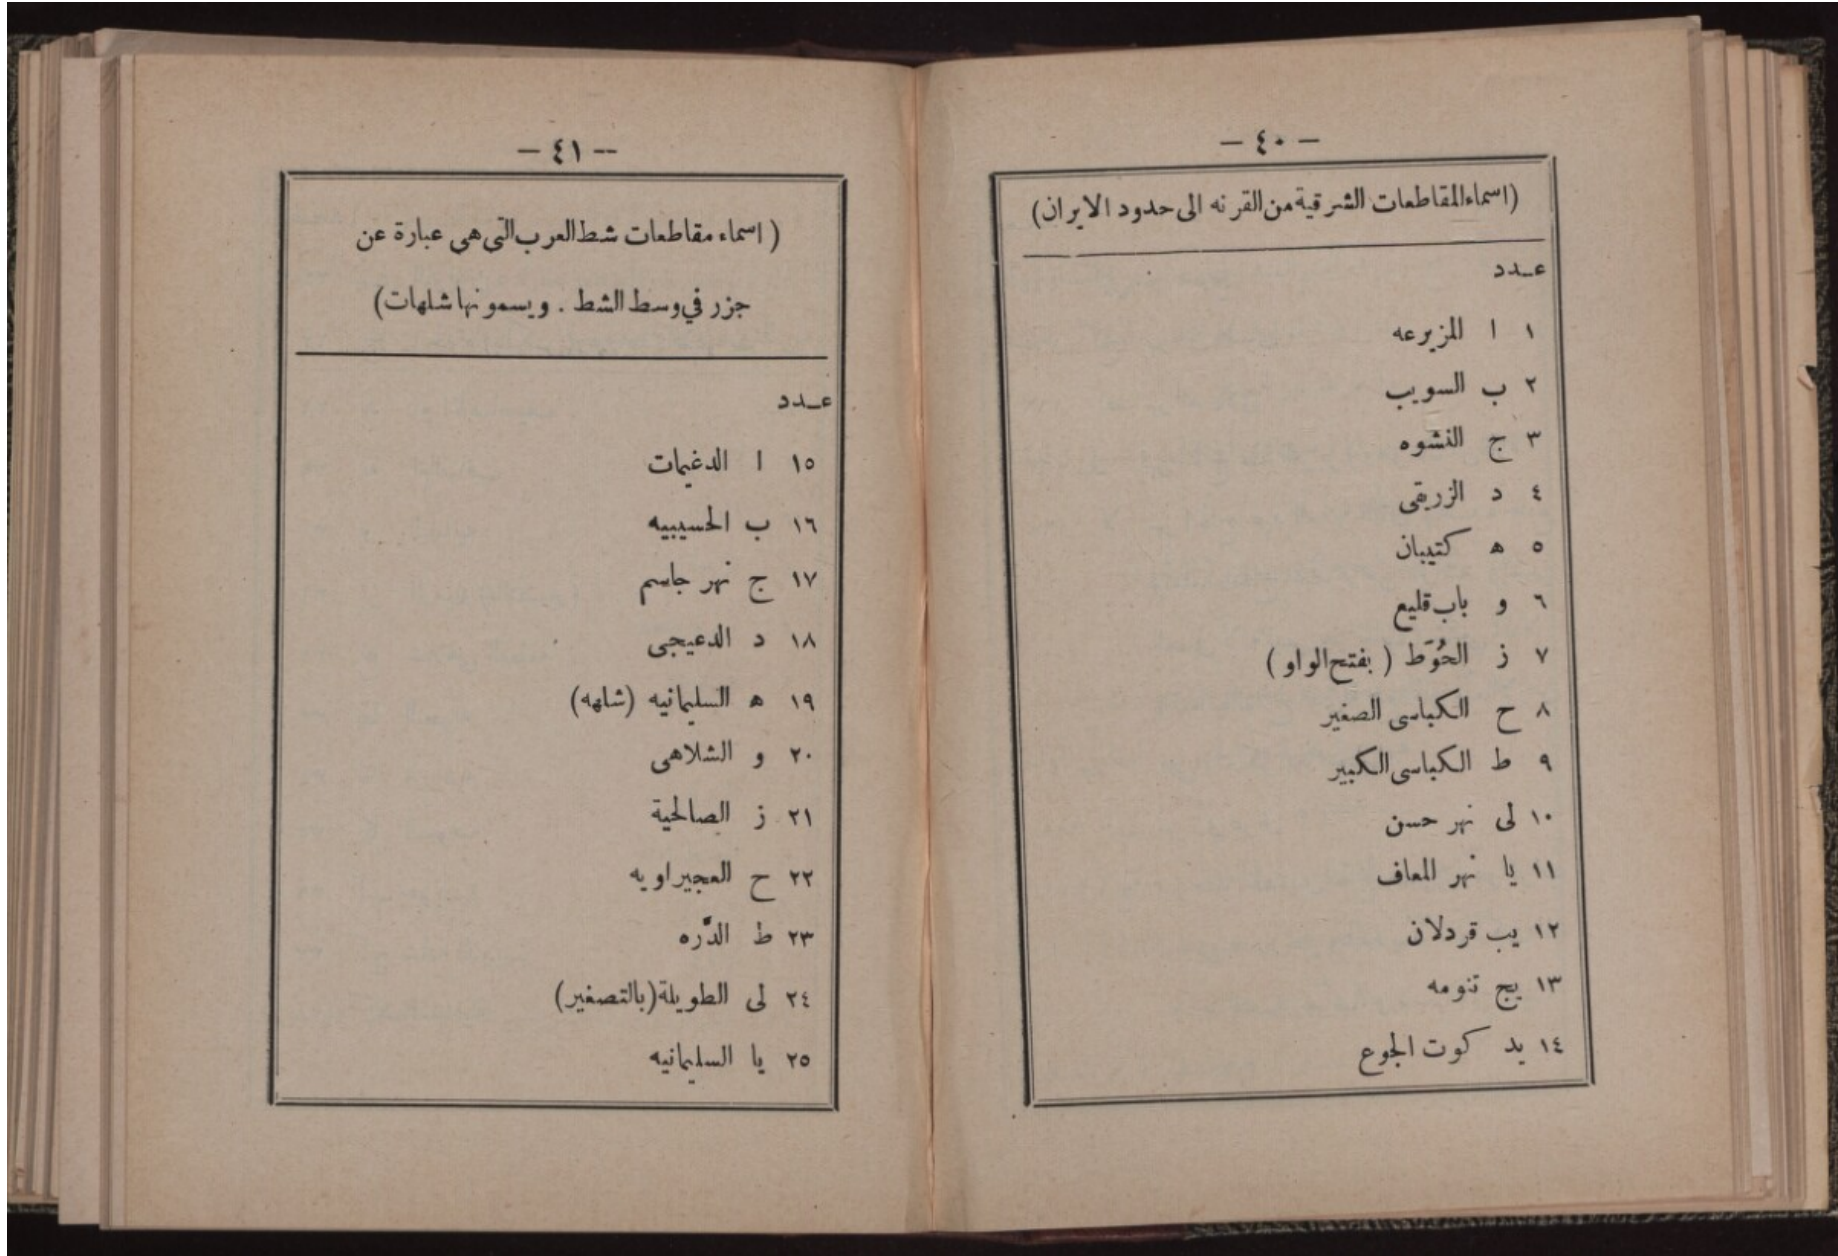 — ٤٠ —
(اسماء المقاطعات الشرقية من القرنه الى حدود الايران)
عـدد
١ ا المزيرعه
٢ ب السويب
٣ ج النشوه
٤ د الزريقى
٥ ه كتيبان
٦ و باب قليع
٧ ز الحُوَط ( بفتح الواو )
٨ ح الكباسى الصغير
٩ ط الكباسى الكبير
١٠ لى نهر حسن
١١ يا نهر المعاف
١٢ يب قردلان
١٣ يج تنومه
١٤ يد كوت الجوع
— ٤١ —
( اسماء مقاطعات شط العرب التى هى عبارة عن
جزر في وسط الشط . ويسمونها شلهات)
عـدد
١٥ ا الدغيمات
١٦ ب الحسيبيه
١٧ ج نهر جاسم
١٨ د الدعيجى
١٩ ه السليمانيه (شلهه)
٢٠ و الشلاهى
٢١ ز الصالحية
٢٢ ح العجيراويه
٢٣ ط الدَّره
٢٤ لى الطويلة (بالتصغير)
٢٥ يا السليمانيه